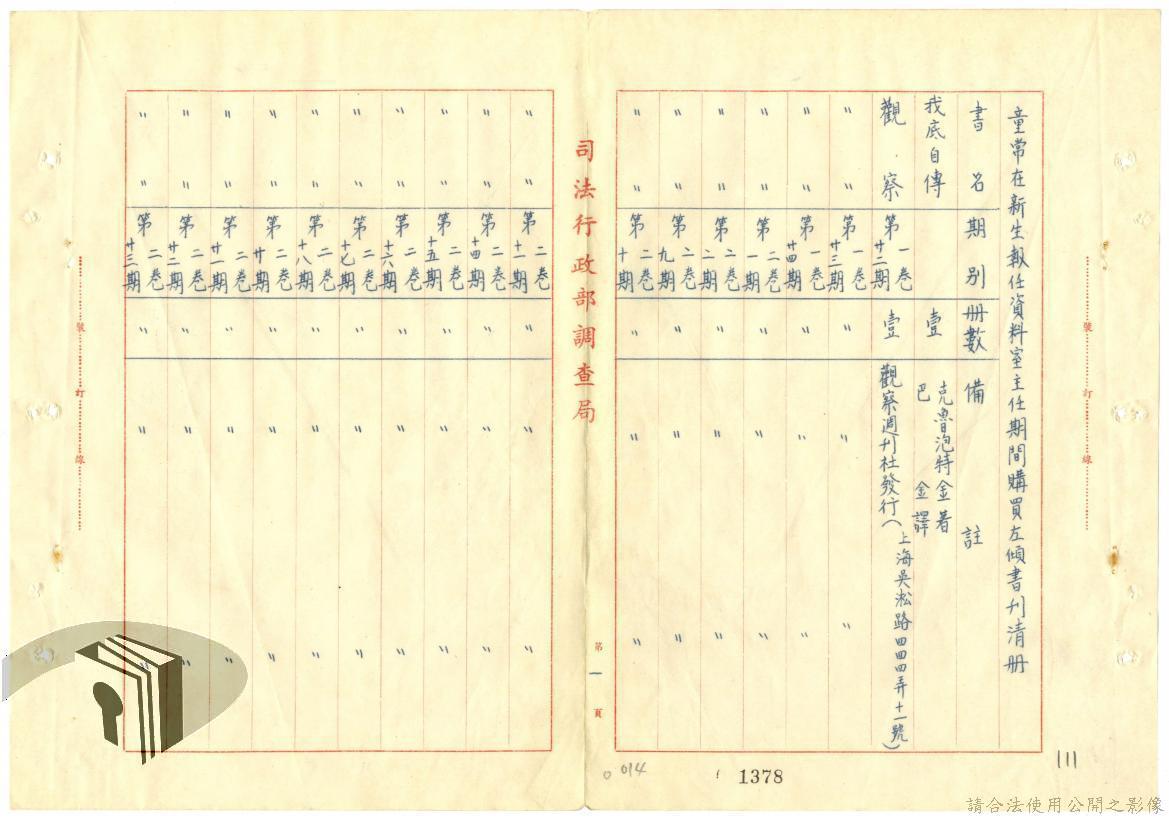 童常在新生報任資料室主任期間購買左傾書刊清册
書名 期別 册數 備註
我底自傳 壹 克魯泡特金著
巴金譯
觀察 第一卷廿二期 壹 觀察週刊社發行(上海吳淞路四四四弄十一號)
〃 〃 第一卷廿三期 〃 〃 〃
〃 〃 第一卷廿四期 〃 〃 〃
〃 〃 第二卷一期 〃 〃 〃
〃 〃 第二卷二期 〃 〃 〃
〃 〃 第二卷九期 〃 〃 〃
〃 〃 第二卷十期 〃 〃 〃
司法行政部調查局
第一頁
〃 〃 第二卷十一期 〃 〃 〃
〃 〃 第二卷十四期 〃 〃 〃
〃 〃 第二卷十五期 〃 〃 〃
〃 〃 第二卷十六期 〃 〃 〃
〃 〃 第二卷十七期 〃 〃 〃
〃 〃 第二卷十八期 〃 〃 〃
〃 〃 第二卷廿期 〃 〃 〃
〃 〃 第二卷廿一期 〃 〃 〃
〃 〃 第二卷廿二期 〃 〃 〃
〃 〃 第二卷廿三期 〃 〃 〃
014
1378
111
請合法使用公開之影像